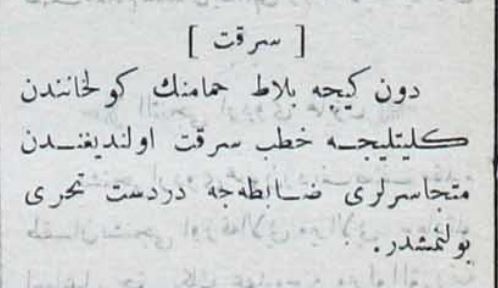 [ سرقت ]
دون کیجه بلاط حمامنك کولخانندن
کلیتلیجه خطب سرقت اولندیغندن
متجاسرلری ضابطه‌جه دردست تحری
بولنمشدر.